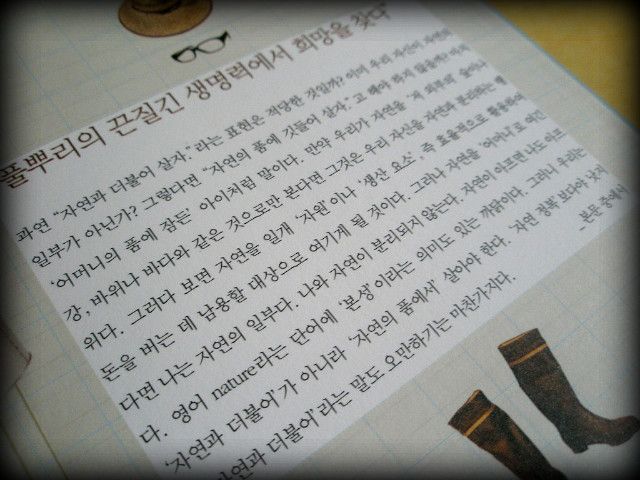 풀뿌리의 끈질긴 생명력에서 희망을 찾다"
과연 "자연과 더불어 살자."라는 표현은 적당한 것일까? 이미 우리 자신이 자연의
일부가 아닌가? 그렇다면 "자연의 품에 깃들어 살자."고 해야 하지 않을까? 마치
'어머니의 품에 잠든' 아이처럼 말이다. 만약 우리가 자연을 '제 외부의'
강, 바위나 바다와 같은 것으로만 본다면 그것은 우리 자신을 자연과 분리하는 행
위다. 그러다 보면 자연을 일개 '자원'이나 '생산 요소', 즉 효율적으로 활용하여
돈을 버는 데 남용할 대상으로 여기게 될 것이다. 그러나 자연을 '어머니'로 여긴
다면 나는 자연의 일부다. 나와 자연이 분리되지 않는다. 자연이 아프면 나도 아프
다. 영어 nature라는 단어에 '본성'이라는 의미도 있는 까닭이다. 그러니 우리는
'자연과 더불어'가 아니라 '자연의 품에서' 살아야 한다. '자연 정복'보다야 낫지
'자연과 더불어'라는 말도 오만하기는 마찬가지다.
- 본문 중에서